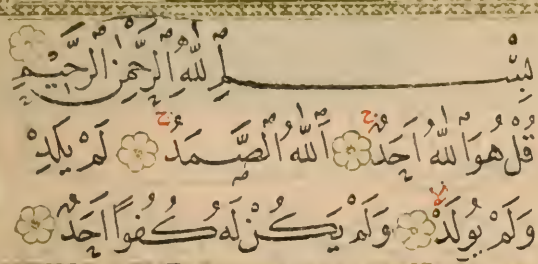 بِسْمِ اللّٰهِ الرَّحْمٰنِ الرَّحِيْمِ
قُلْ هُوَ اللّٰهُ اَحَدٌ ج اَللّٰهُ الصَّمَدُ ج لَمْ يَلِدْ
وَلَمْ يُولَدْ لا وَلَمْ يَكُنْ لَهُ كُفُوًا اَحَدٌ